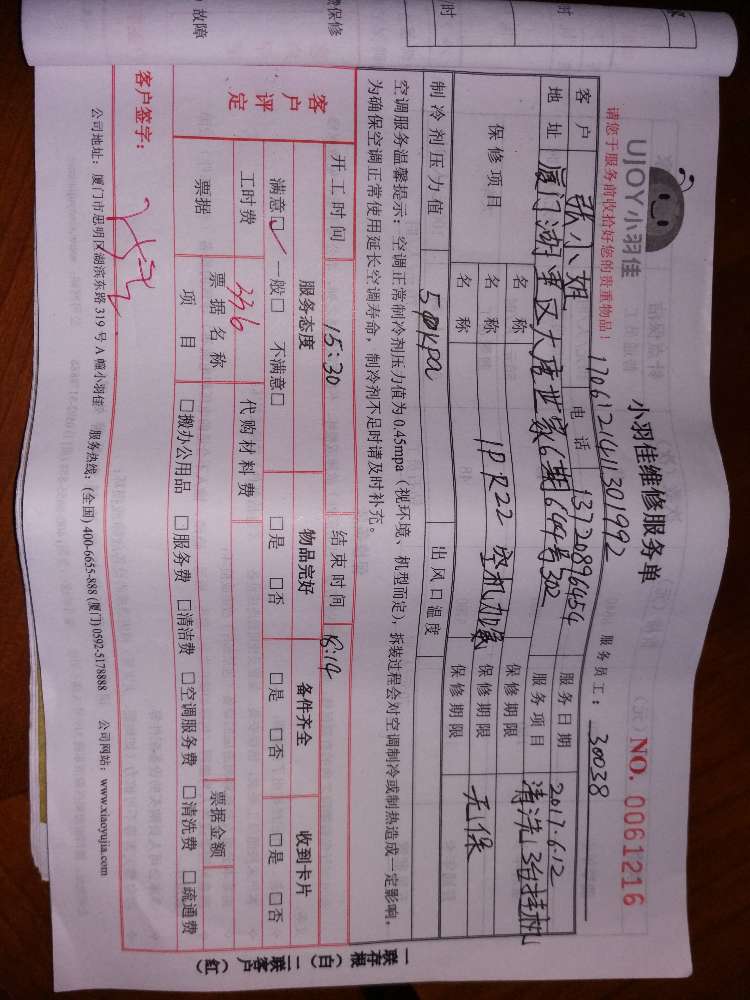 故障
费保修
时
时
UJOY小羽佳
小羽佳维修服务单
NO. 0061216
170612141301992
服务员工：30038
请您于服务前收拾好您的贵重物品！
客户 张小姐 电话 13720896454 服务日期 2017.6.12
地址 厦门湖里区大唐世家6期644号302 服务项目 清洗1台挂机
保修项目 名称 保修期限
名称 1P R22 空机加氟 保修期限 无保
名称 保修期限
制冷剂压力值 50kpa 出风口温度
空调服务温馨提示：空调正常制冷剂压力值为0.45mpa（视环境、机型而定），拆装过程会对空调制冷或制热造成一定影响，
为确保空调正常使用延长空调寿命，制冷剂不足时请及时补充。
客户评定
开工时间 15:30 结束时间 18:14
服务态度 物品完好 备件齐全 收到卡片
满意□✓ 一般□ 不满意□ □是 □否 □是 □否 □是 □否
工时费 336 代购材料费
票据 票据名称 票据金额
项目 □搬办公用品 □服务费 □清洁费 □空调服务费 □清洗费 □疏通费
客户签字：
一联存根（白） 二联客户（红）
公司地址：厦门市思明区湖滨东路319号A幢小羽佳 服务热线：(全国) 400-6655-888 (厦门) 0592-5178888 公司网站：www.xiaoyujia.com